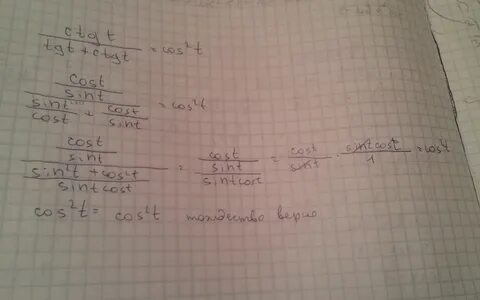 ctgt / (tgt + ctgt) = cos²t
(cost / sint) / (sint / cost + cost / sint) = cos²t
(cost / sint) / ((sin²t + cos²t) / (sint cost)) = (cost / sint) / (1 / (sint cost)) = cost / sint · sint cost / 1 = cos²t
cos²t = cos²t тождество верно